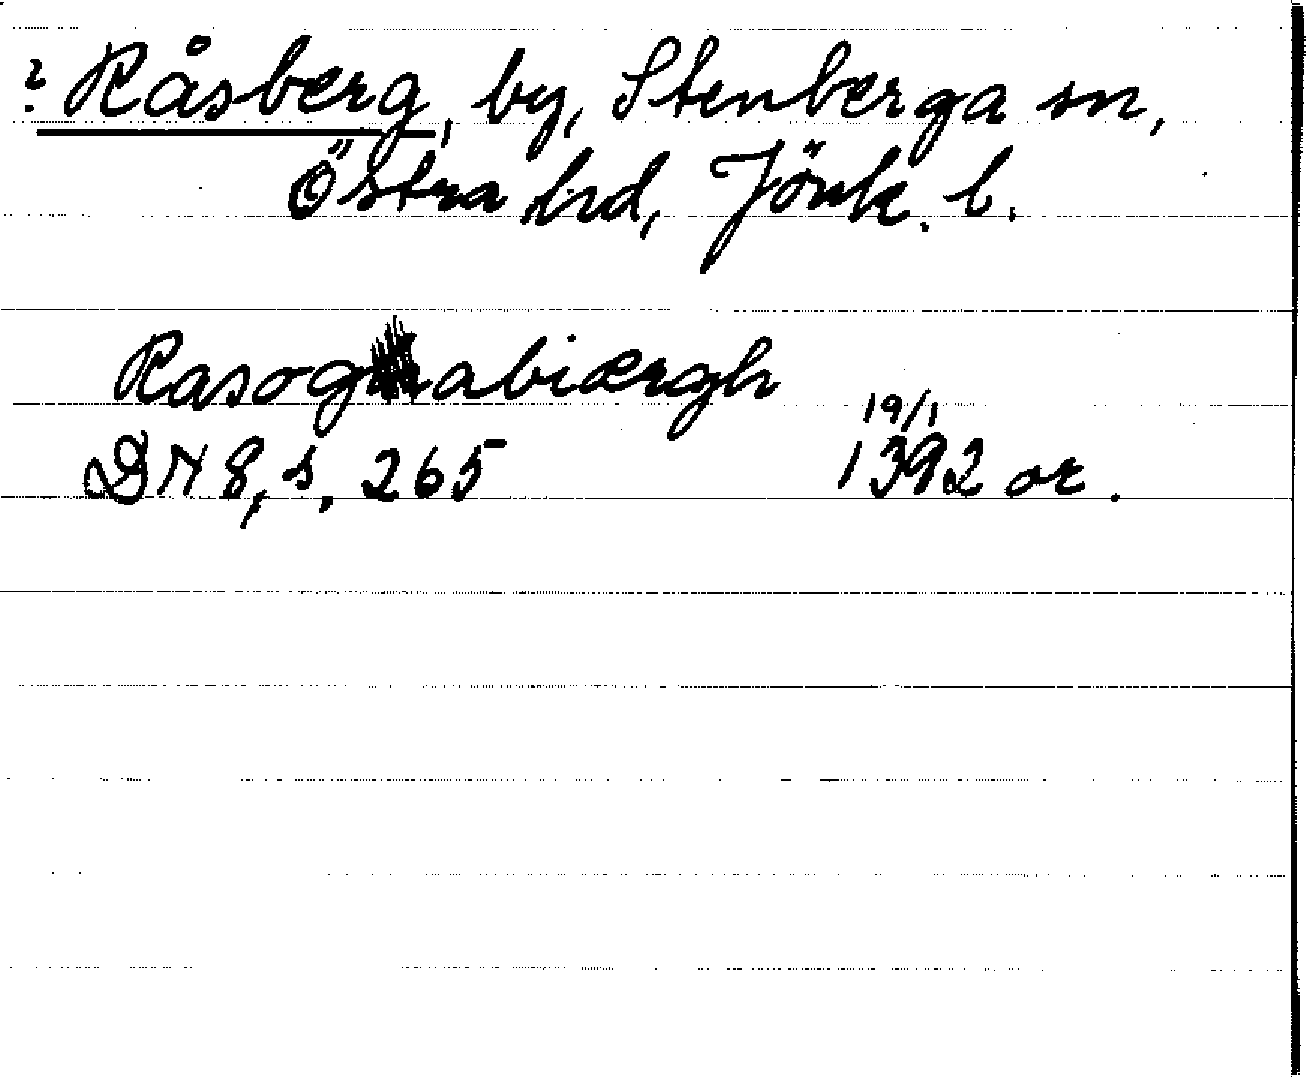 ? Råsberg, by, Stenberga sn,
Östra hd, Jönk. l.
Rasogabiærgh
19/1
DN 8, s. 265 1392 or.